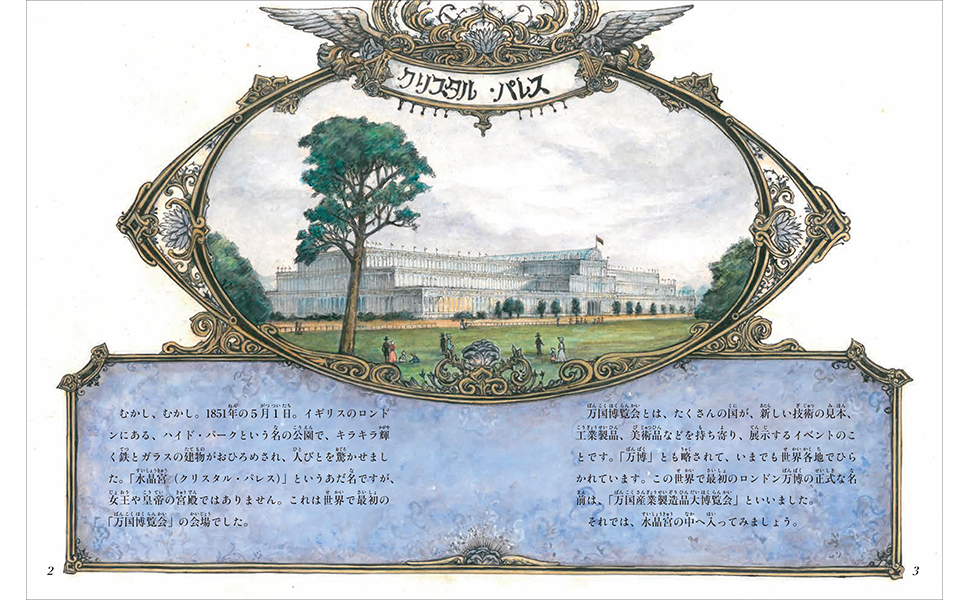 クリスタル・パレス
むかし、むかし。1851年の5月1日。イギリスのロンド
ンにある、ハイド・パークという名の公園で、キラキラ輝
く鉄とガラスの建物がおひろめされ、人びとを驚かせまし
た。「水晶宮（クリスタル・パレス）」というあだ名ですが、
女王や皇帝の宮殿ではありません。これは世界で最初の
「万国博覧会」の会場でした。
万国博覧会とは、たくさんの国が、新しい技術の見本、
工業製品、美術品などを持ち寄り、展示するイベントのこ
とです。「万博」とも略されて、いまでも世界各地でひら
かれています。この世界で最初のロンドン万博の正式な名
前は、「万国産業製造品大博覧会」といいました。
それでは、水晶宮の中へ入ってみましょう。
2
3